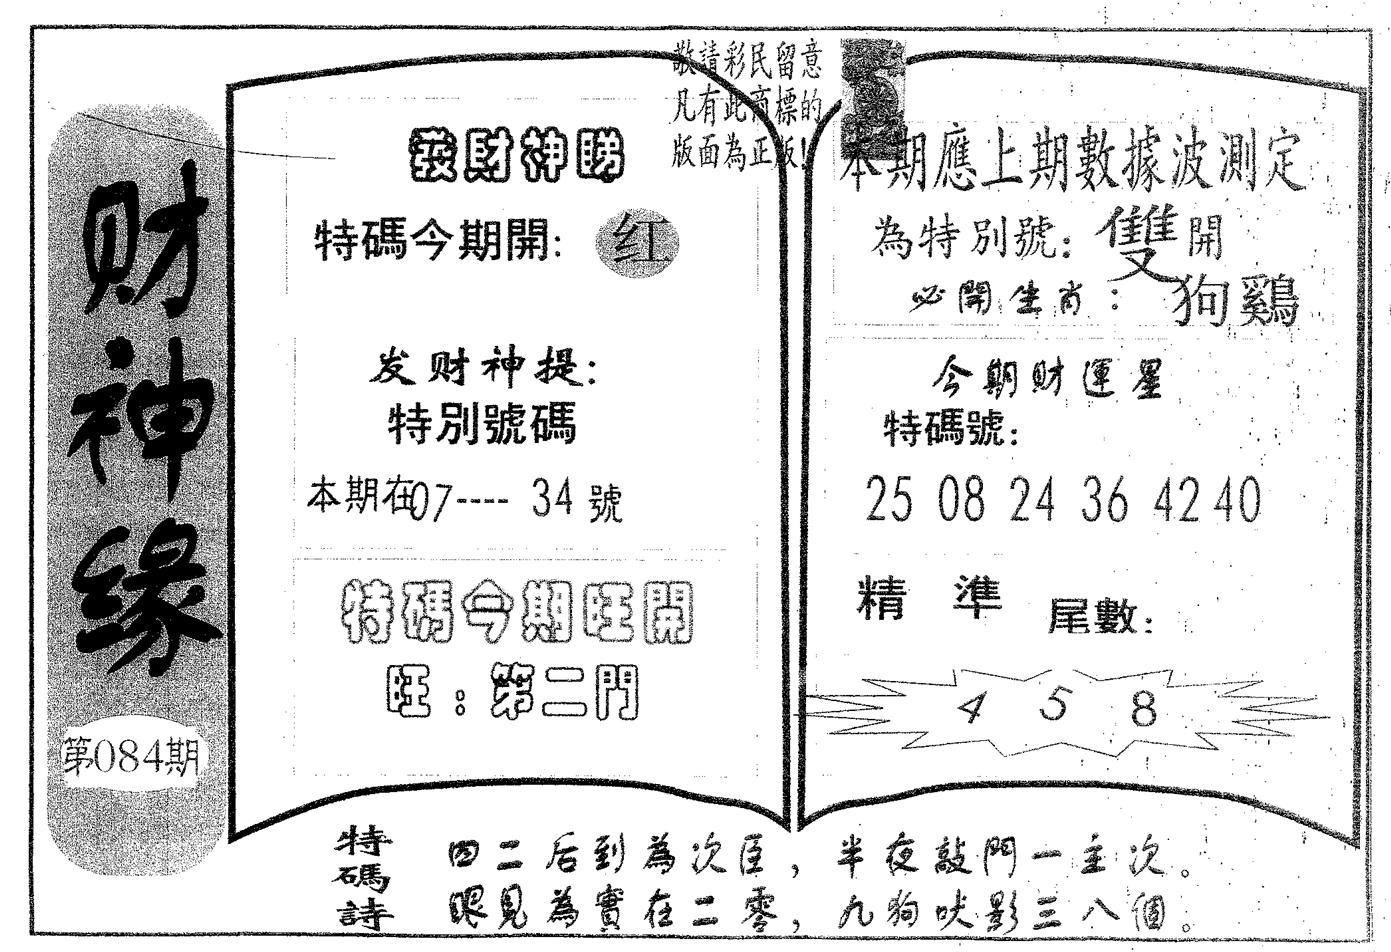 财神缘
第084期
敬請彩民留意
凡有此商標的
版面為正版!
發財神睇
特碼今期開: 红
发财神提:
特別號碼
本期在07---- 34 號
特碼今期旺開
旺:第二門
本期應上期數據波測定
為特別號: 雙開
必開生肖: 狗鷄
今期財運星
特碼號:
25 08 24 36 42 40
精準 尾數:
4 5 8
特碼詩
四二后到為次臣,半夜敲門一主次。
眼見為實在二零,九狗吠影三八個。